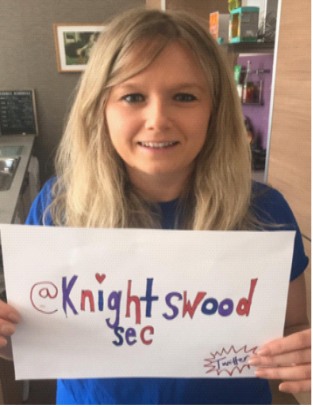 @Knightswood
sec
Twitter